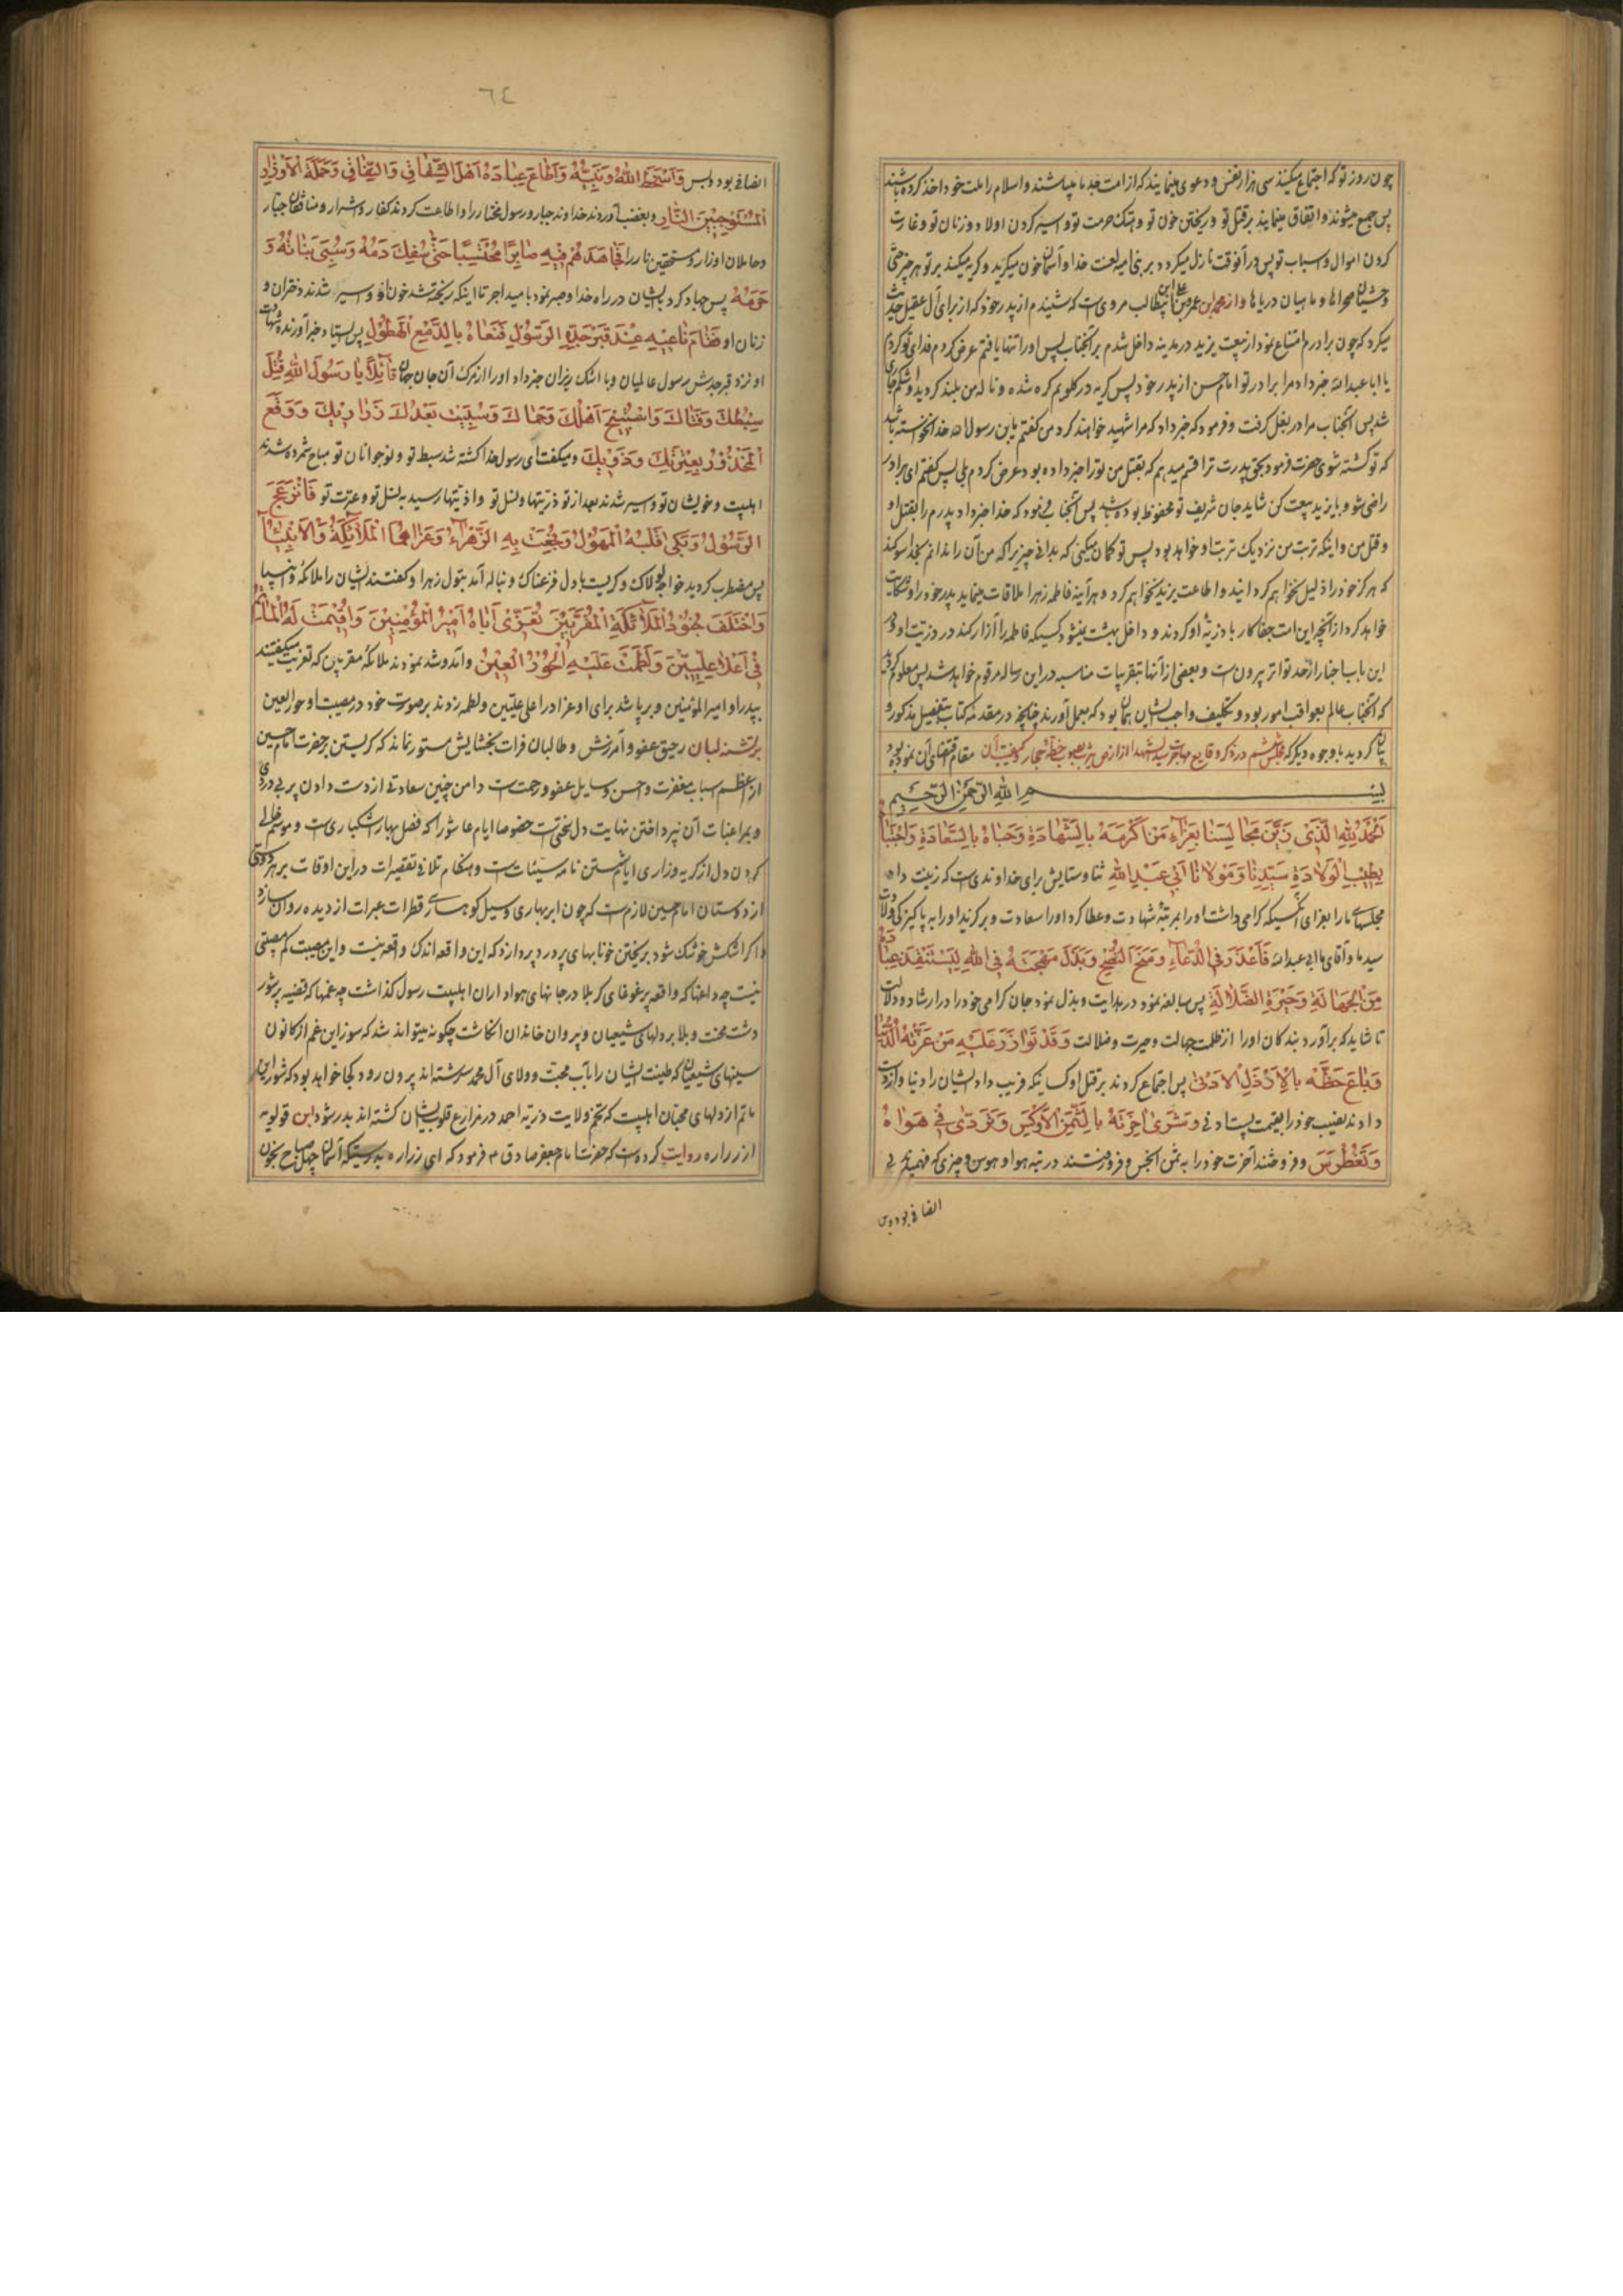 چون روز تو که اجتماع میکنند سی هزار نفس و دعوی مینمایند که از امت جد ما میباشند و اسلام را ملت خود اخذ کرده باشند
پس جمع میشوند و اتفاق مینمایند بر قتل تو و ریختن خون تو و هتک حرمت تو و اسیر کردن اولاد و زنان تو و غارت
کردن اموال و اسباب تو پس در آنوقت نازل میگردد بر بنی امیه لعنت خدا و آسمان خون میگرید و گریه میکند بر تو هر چیز حتی
وحشیان صحراها و ماهیان دریاها و از محمد بن عمر بن علی بن ابیطالب مرویست که شنیدم از پدر خود که از برای آل عقیل حدیث
میکرد که چون برادرم امتناع نمود از بیعت یزید در مدینه داخل شدم بر آنجناب پس او را تنها یافتم عرض کردم فدای تو گردم
یا ابا عبد الله خبر داد مرا برادر تو امام حسن از پدر خود پس گریه در گلویم گره شده و ناله من بلند گردید و اشکم جاری
شد پس آنجناب مرا در بغل گرفت و فرمود که خبر داد که مرا شهید خواهند کرد من گفتم یابن رسول الله خدا نخواسته باشد
که تو کشته شوی حضرت فرمود بحق پدرت ترا قسم میدهم که بقتل من ترا خبر داده بود عرض کردم بلی پس گفتم ای برادر
راضی شو و با یزید بیعت کن شاید جان شریف تو محفوظ بوده باشد پس آنجناب فرمود که خدا خبر داد پدرم را بقتل او
و قتل من و اینکه تربت من نزدیک تربت او خواهد بود پس تو گمان میکنی که بدانی چیزیرا که من آن را ندانم بخدا سوگند
که هرگز خود را ذلیل نخواهم گردانید و اطاعت یزید نخواهم کرد و هر آینه فاطمه زهرا ملاقات مینماید پدر خود را و شکایت
خواهد کرد از آنچه این امت جفاکار با ذریه او کردند و داخل بهشت نمیشود کسیکه فاطمه را آزار کند در ذریت او و در
این باب اخبار از حد تواتر بیرونست و بعضی از آنها بتقریبات مناسبه در این رساله مرقوم خواهد شد پس معلوم گردید
که آنجناب عالم بعواقب امور بود و تکلیف واجب ایشان همان بود که بعمل آورند چنانچه در مقدمه کتاب بتفصیل مذکور و
بیان گردید با وجوه دیگر که مجلس ششم در ذکر وقایع مهاجرت سید الشهدا از ارض یثرب بصوب خطه حجاز و کیفیت آن مقام مقتضای آن نموده بود
بسم الله الرحمن الرحیم
اَلْحَمْدُ لِلّهِ الَّذی زَیَّنَ مَجالِسَنا بِعَزاءِ مَنْ اَکْرَمَهُ بِالشَّهادَةِ وَحَباهُ بِالسَّعادَةِ وَاجْتَباهُ
بِطیبِ الْوِلادَةِ سَیِّدِنا وَمَوْلانا اَبی عَبْدِ اللهِ ثنا و ستایش برای خداوندیست که زینت داد
مجلسهای ما را بعزای آنکسیکه گرامی داشت او را بمرتبه شهادت و عطا کرد او را سعادت و برگزید او را به پاکیزگی ولادت
سید ما و آقای ما ابی عبد الله فَاَعْذَرَ فِی الدُّعاءِ وَمَنَحَ النُّصْحَ وَبَذَلَ مُهْجَتَهُ فِی اللهِ لِیَسْتَنْقِذَ عِبادَهُ
مِنَ الْجَهالَةِ وَحَیْرَةِ الضَّلالَةِ پس مبالغه نمود در هدایت و بذل نمود جان گرامی خود را در ارشاد و دلالت
تا شاید که برآورد بندگان او را از ظلمت جهالت و حیرت و ضلالت وَقَدْ تَوازَرَ عَلَیْهِ مَنْ غَرَّتْهُ الدُّنْیا
وَباعَ حَظَّهُ بِالْاَرْذَلِ الْاَدْنی پس اجتماع کردند بر قتل او کسانیکه فریب داد ایشان را دنیا و از دست
دادند نصیب خود را بقیمت پست و دنی وَشَری اخِرَتَهُ بِالثَّمَنِ الْاَوْکَسِ وَتَرَدّی فی هَواهُ
وَتَغَطْرَسَ و فروختند آخرت خود را به ثمن انجس و فرو رفتند در تیه هوا و هوس و چیزی که نفهمیدند بی
انصافی بود و بس
٦٤
انصافی بود و بس وَاَسْخَطَ اللهَ وَنَبِیَّهُ وَاَطاعَ عِبادَهُ اَهْلَ الشِّقاقِ وَالنِّفاقِ وَحَمَلَةَ الْاَوْزارِ
الْمُسْتَوْجِبینَ النّارِ و بغضب آوردند خداوند جبار و رسول مختار را و اطاعت کردند کفار و اشرار و منافقان جبار
و حاملان اوزار و مستحقین نار را فَجاهَدَهُمْ فیهِ صابِرًا مُحْتَسِبًا حَتّی سُفِکَ دَمُهُ وَسُبِیَ بَناتُهُ وَ
حَرَمُهُ پس جهاد کرد بایشان در راه خدا و صبر نمود بامید اجر تا اینکه ریخته شد خون او و اسیر شدند دختران و
زنان او فَقامَ ناعیهِ عِنْدَ قَبْرِ جَدِّهِ الرَّسُولِ فَنَعاهُ بِالدَّمْعِ الْهَطُولِ پس ایستاد خبر آورنده شهادت
او نزد قبر جدش رسول عالمیان و با اشک ریزان خبر داد او را از مرگ آن جان جهان قائِلًا یا رَسُولَ اللهِ قُتِلَ
سِبْطُکَ وَفَتاکَ وَاسْتُبیحَ اَهْلُکَ وَحِماکَ وَسُبِیَتْ بَعْدَکَ ذَراریکَ وَوَقَعَ
الْمَحْذُورُ بِعِتْرَتِکَ وَذَویکَ و میگفت ای رسول خدا کشته شد سبط تو و نوجوانان تو مباح شمرده شدند
اهلبیت و خویشان تو و اسیر شدند بعد از تو ذریتها و نسل تو و اذیتها رسید به نسل تو و عترت تو فَانْزَعَجَ
الرَّسُولُ وَبَکی قَلْبُهُ الْمَهُولُ وَفُجِعَتْ بِهِ الزَّهْراءُ وَعَزّاهُمَا الْمَلائِکَةُ وَالْاَنْبِیاءُ
پس مضطرب گردید خواجه لولاک و گریست با دل فزعناک و بناله آمد بتول زهرا و گفتند ایشان را ملائکه و انبیا
وَاخْتَلَفَ جُنُودُ الْمَلائِکَةِ الْمُقَرَّبینَ تُعَزّی اَباهُ اَمیرَ الْمُؤْمِنینَ وَاُقیمَتْ لَهُ الْمَآتِمُ
فی اَعْلا عِلِّیّینَ وَلَطَمَتْ عَلَیْهِ الْحُورُ الْعینُ و آمد و شد نمودند ملائکه مقربین که تعزیت میگفتند
پدر او امیر المؤمنین و برپا شد برای او عزا در اعلی علیین و لطمه زدند بر صورت خود در مصیبت او حور العین
بر تشنه لبان رحیق عفو و آمرزش و طالبان فرات بخشایش مستور نماند که گریستن بر حضرت امام حسین
از اعظم اسباب مغفرت و احسن وسایل عفو و رحمتست و دامن چنین سعادتی از دست دادن پر بی دردی
و بمراعات آن نپرداختن نهایت دل سختیست خصوصا ایام عاشورا که فصل بهار اشکباریست و موسم خالی
کردن دل از گریه و زاری ایام شستن نامه سیئاتست و هنگام تلافی تقصیرات در این اوقات بر هر دوستی
از دوستان امام حسین لازمست که چون ابر بهاری و سیل کوهساری قطرات عبرات از دیده روان سازد
و اگر اشکش خشک شود بریختن خونابهای پر درد پردازد که این واقعه اندک واقعه نیست و این مصیبت کم مصیبتی
نیست چه داغها که واقعه پر غوغای کربلا در جانهای هواداران اهلبیت رسول گذاشت چه غمها که قضیه پر شور
دشت محنت و بلا بر دلهای شیعیان و پیروان خاندان انگاشت چگونه میتواند شد که سوز این غم از کانون
سینهای شیعیان که طینت ایشان را بآب محبت و ولای آل محمد سرشته اند بیرون رود کجا خواهد بود که شور این
ماتم از دلهای محبان اهلبیت که تخم ولایت ذریه احمد در مزارع قلوب ایشان کشته اند بدر شود ابن قولویه
از زراره روایت کرده است که حضرت امام جعفر صادق ع فرمود که ای زراره بدرستیکه آسمان چهل صباح بخون